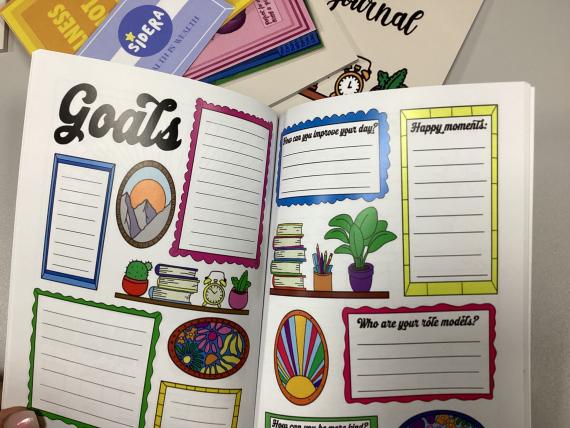 Journal
SIDERA
Goals
How can you improve your day?
Happy moments:
Who are your role models?
How can you be more kind?